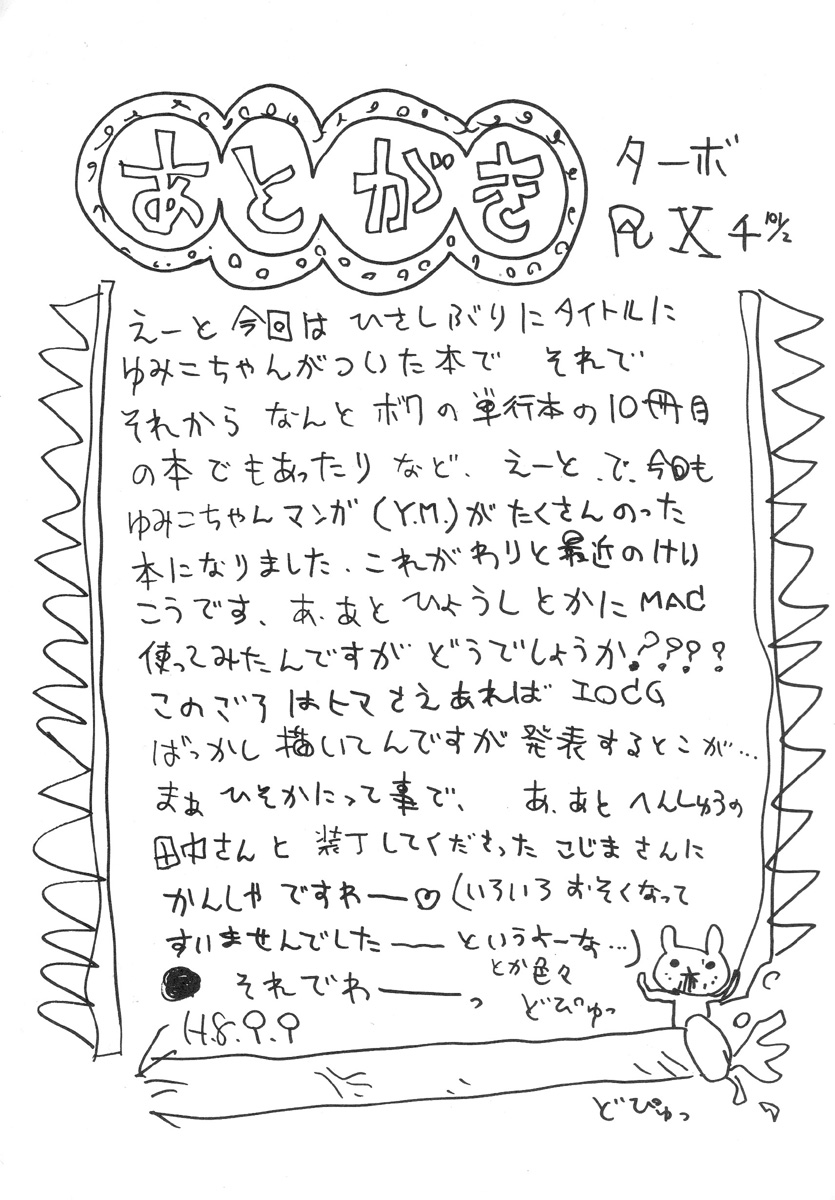 あとがき
ターボ
RX4 10 1/2
えーと 今回は ひさしぶりに タイトルに
ゆみこちゃんがついた本で それで
それから なんと ボクの 単行本の10冊目
の本でもあったり など、えーと、で、今回も
ゆみこちゃんマンガ(Y.M.)がたくさんのった
本になりました、これがわりと最近のけい
こうです、あ、あと ひょうしとかに MAC
使ってみたんですが どうでしょうか????
このごろはヒマさえあれば エロCG
ばっかし 描いてんですが 発表するとこが…
まぁ ひそかにって事で、 あ、あと へんしゅうの
田中さんと 装丁してくださった こじまさんに
かんしゃですわー♡(いろいろ おそくなって
すいませんでしたー というよーな…)
● それでわーっ
とか色々
どぴゅっ
H.8.9.9
どぴゅっ